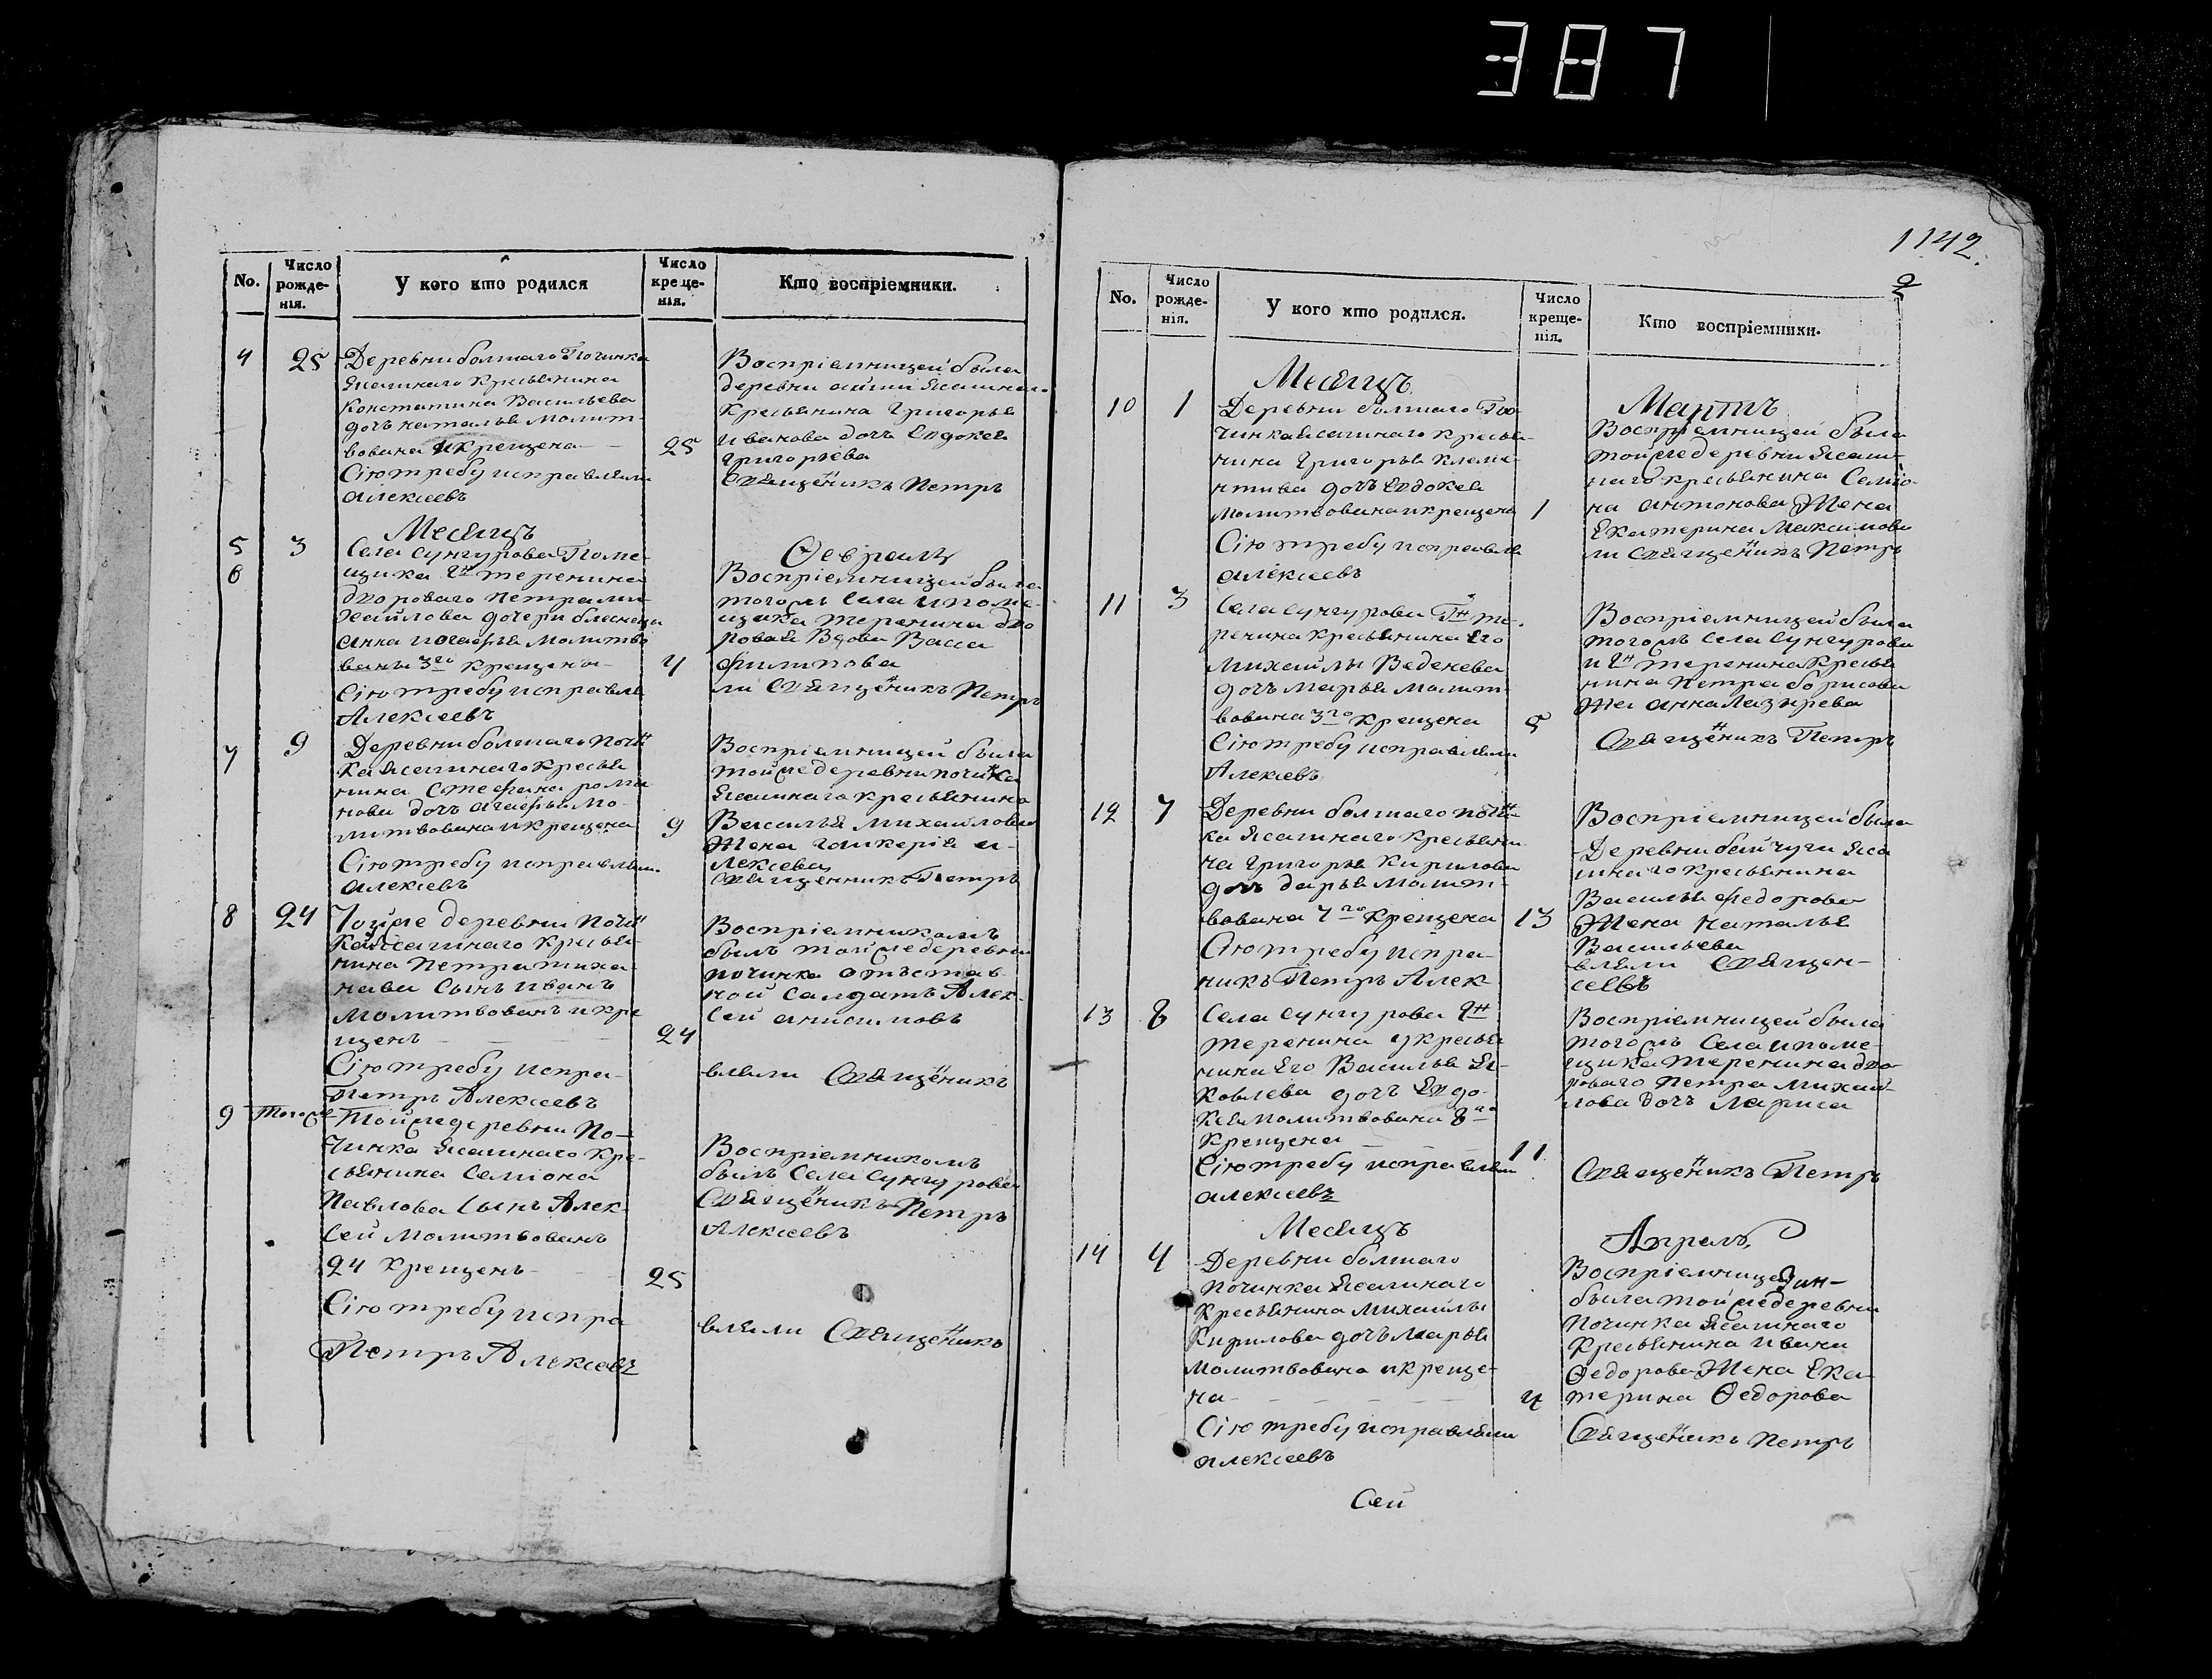 387
No.
Число рожде-нія.
У кого кто родился
Число креще-нія.
Кто воспріемники.
4
25
Деревни болшаго Починка
Ясашнаго Кресьянина
Константина Васильева
дочь наталья молит-
вована и крещена
25
Сію требу исправляли
алексеевъ
Воспріемницей была
деревни Ясашнаго
Кресьянина григорья
иванова дочь Евдокея
григорьева
Священикъ Петръ
Месяцъ
Февраль
5
3
6
Села сунгурова Поме-
щика Гн теренина
дворового Петра ми-
хайлова дочери близнеца
анна и агафья молитво
ваны 3го крещены
4
Сію требу исправля
Алексеевъ
Воспріемницей была
тогожъ села и поме-
щика теренина дво
ровая Вдова Васса
филипова
ли Священикъ Петръ
7
9
Деревни болшаго почин
ка Ясашнаго Кресья
нина стефана рома
нова дочь агафья мо-
литвована и крещена
9
Сію требу исправляли
алексеевъ
Воспріемницей была
тойже деревни починка
Ясашнаго кресьянина
Василья михайлова
Жена гликерія а-
лексеева
Священникъ Петръ
8
24
Тойже деревни почин
ка Ясашнаго кресья-
нина Петра тиха-
нава сынъ иванъ
молитвованъ и кре
щенъ
24
Сію требу испра-
Петръ Алексеевъ
Воспріемникомъ
былъ тойже деревни
починка отъстав-
ной салдатъ Алек-
сей анисимовъ
вляли Священикъ
9
Тогоже
Тойже деревни По-
чинка Ясашнаго кре-
сьянина Семіона
Павлова сынъ Алек
сей молитвованъ
24 крещенъ
25
Сію требу испра
Петръ Алексеевъ
Воспріемникомъ
былъ Села Сунгурова
Священикъ Петръ
Алексеевъ
вляли Священикъ
1142.
No.
Число рожде-нія.
У кого кто родился.
Число креще-нія.
Кто воспріемники.
Месяцъ
Мартъ
10
1
Деревни болшаго По-
чинка Ясашнаго кресья-
нина григорья клеме-
нтива дочь Евдокея
молитвована и крещена
1
Сію требу исправля
алексеевъ
Воспріемницей была
тойже деревни Ясаш-
наго кресьянина Семіо-
на антонова Жена
Екатерина Максимова
ли Священикъ Петръ
11
3
Села сунгурова Гн те-
ренина кресьянина Его
михайлы Веденева
дочь марья молит-
вована 3го крещена
5
Сію требу исправляли
Алексевъ
Воспріемницей была
тогожъ села сунгурова
и Гн теренина кресья
нина Петра борисова
Же анна Лазырева
Священикъ Петръ
12
7
Деревни болшаго почин-
ка Ясашнаго кресьяни
на григорья кирилова
дочь дарья молит-
вована 7го крещена
13
Сію требу испра-
никъ Петръ Алек
Воспріемницей была
Деревни байчуги Яса
шнаго кресьянина
Василья федорова
Жена наталья
Васильева
вляли Священ-
сеевъ
13
8
Села сунгурова Гн
теренина укресья
нина Его Василья Я-
ковлева дочь Евдо-
кея молитвована 8го
крещена
11
Сію требу исправляли
алексеевъ
Воспріемницей была
тогожъ села и поме-
щика теренина дво-
роваго Петра михай
лова дочь Лариса
Священикъ Петръ
Месяцъ
Апрель
14
4
Деревни болшаго
починка Ясашнаго
кресьянина михайлы
кирилова дочь марья
молитвована и креще-
на
4
Сію требу исправляли
алексеевъ
Воспріемницей
была тойже деревни
Починка Ясашнаго
Кресьянина ивана
Федорова Жена Ека-
терина Федорова
Священикъ Петръ
Сей